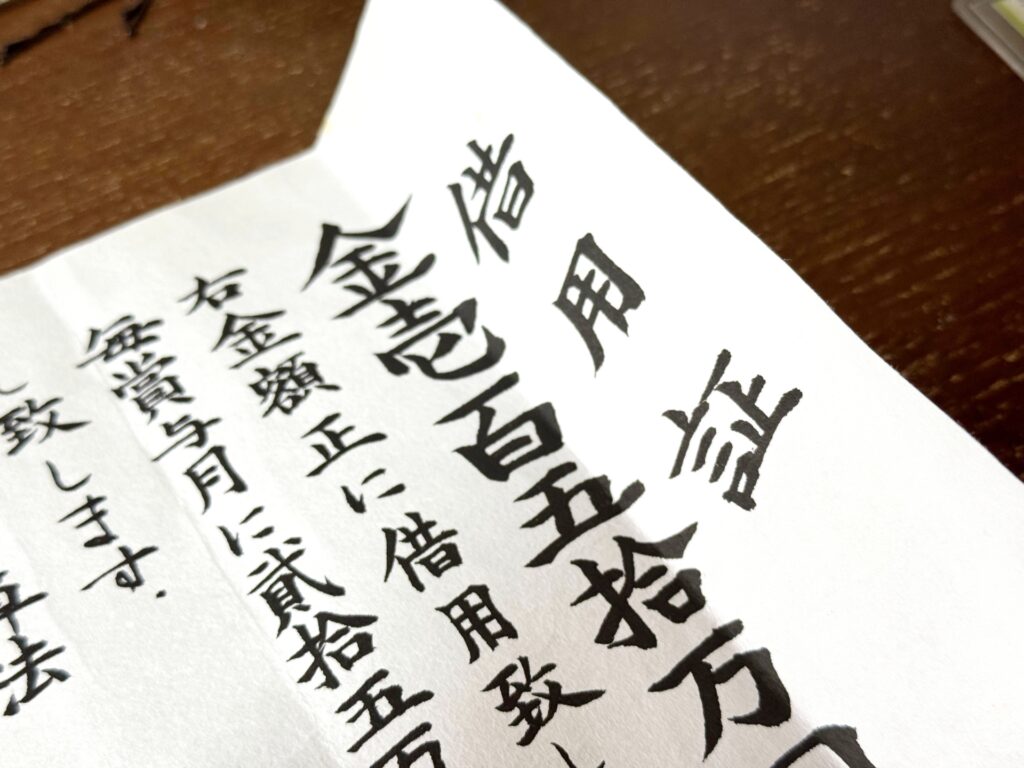 借用証
金壱百五拾万円
右金額正に借用致し
毎賞与月に貳拾五万
致します.
法